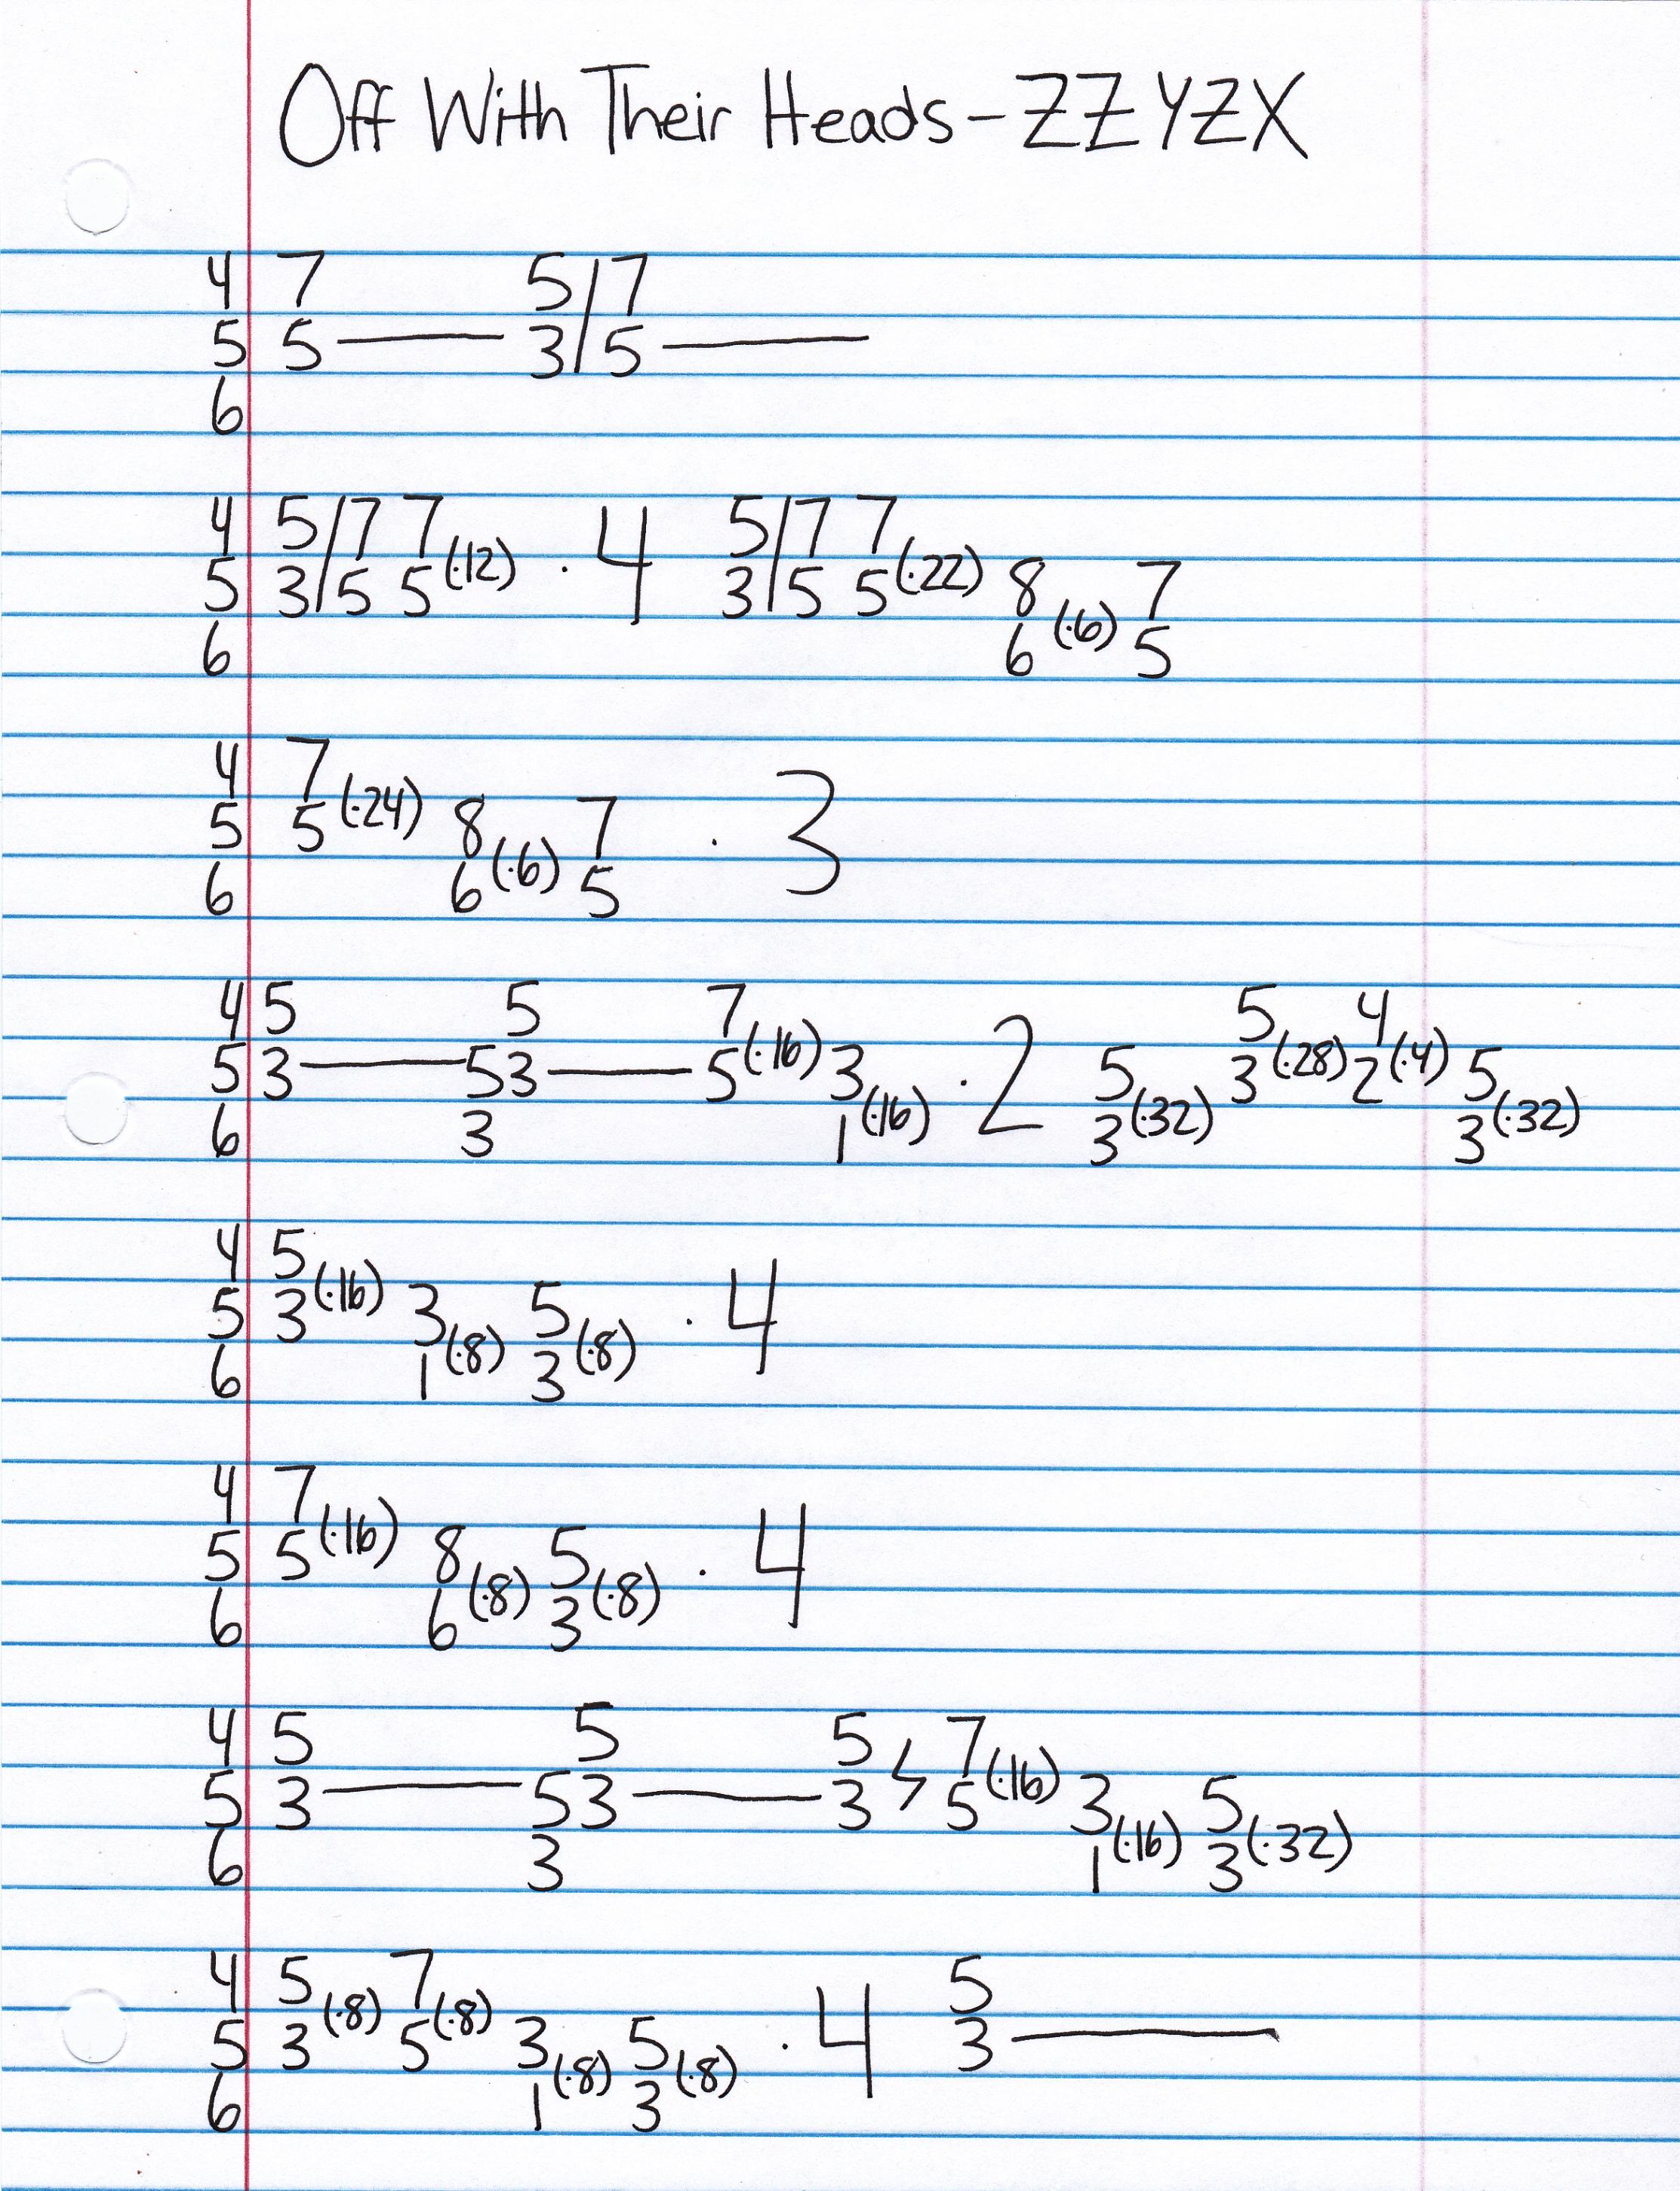 Off With Their Heads - ZZYZX
4 7 5/7
5 5 —— 3/5 ——
6
4 5/7 7 5/7 7
5 3/5 5(·12) · 4 3/5 5(·22) 8 7
6 6(·6) 5
4 7
5 5(·24) 8 7 · 3
6 6(·6) 5
4 5 5 7 5 4
5 3 —— 53 —— 5(·16) 3 · 2 5 3(·28) 2(·4) 5
6 3 1(·16) 3(·32) 3(·32)
4 5
5 3(·16) 3 5 · 4
6 1(·8) 3(·8)
4 7
5 5(·16) 8 5 · 4
6 6(·8) 3(·8)
4 5 5 5 7
5 3 —— 53 —— 3 ϟ 5(·16) 3 5
6 3 1(·16) 3(·32)
4 5 7 5
5 3(·8) 5(·8) 3 5 · 4 3 ——
6 1(·8) 3(·8)